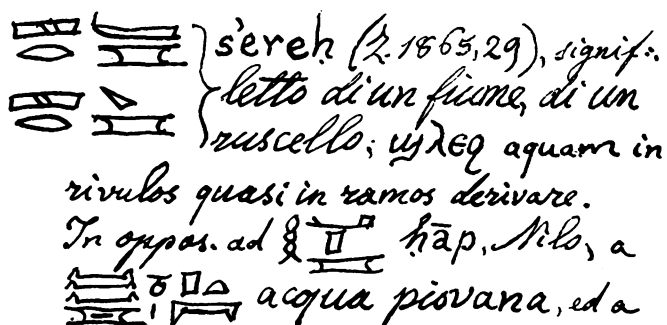 s'ereḥ (Z. 1865, 29), signif:.
letto di un fiume, di un
ruscello; ϣλεϥ aquam in
rivulos quasi in ramos derivare.
In oppos. ad ḥāp, Nilo, a
acqua piovana, ed a